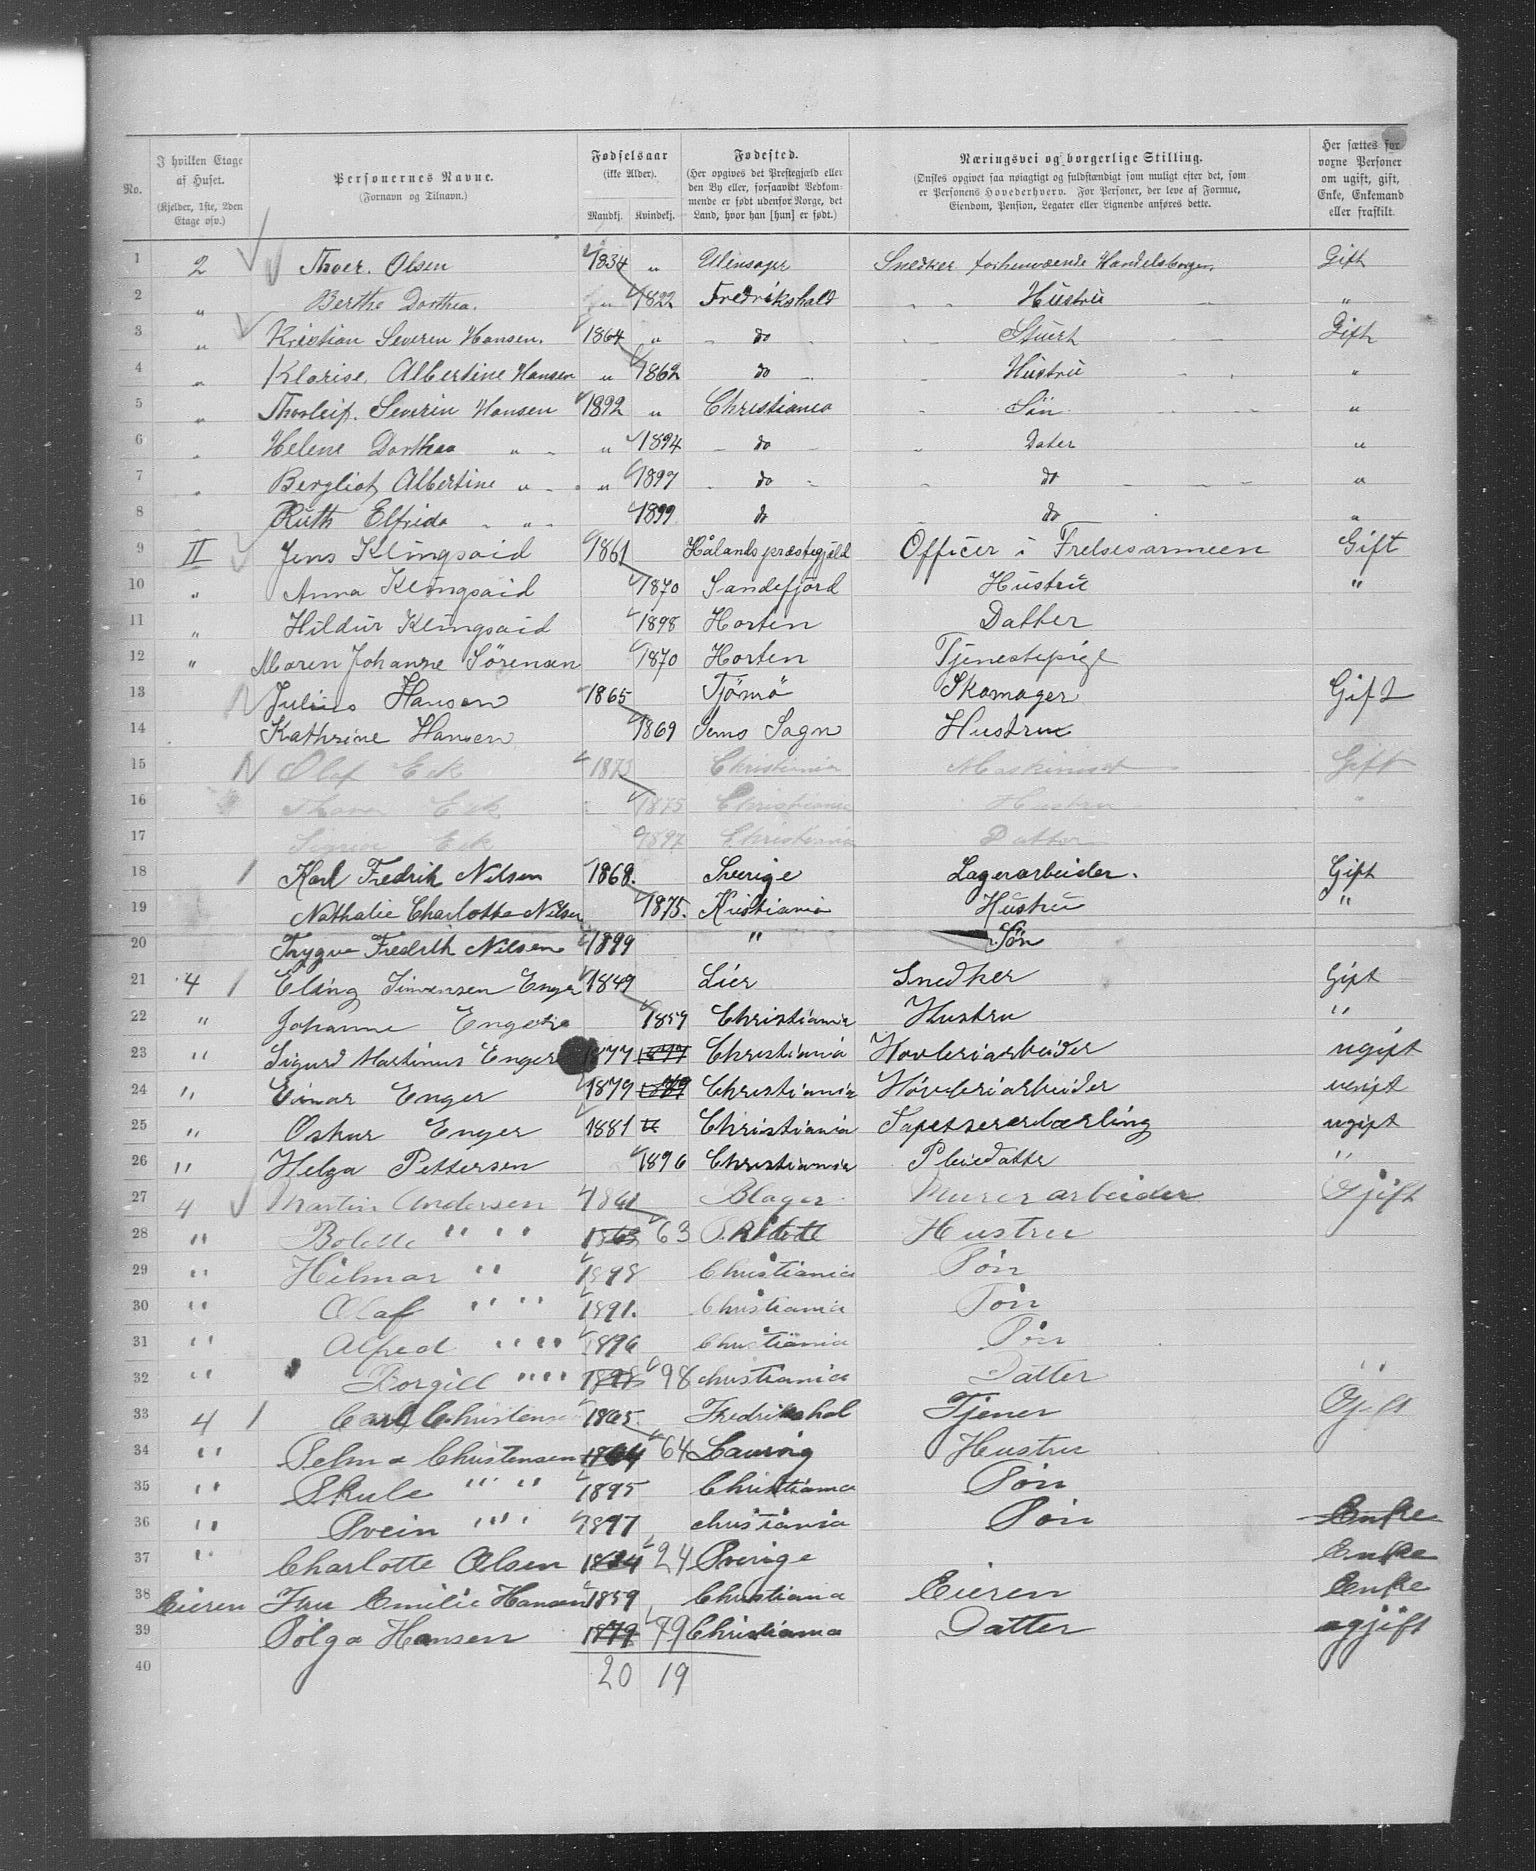 No.
I hvilken Etage af Huset.
(Kjelder, 1ste, 2den Etage osv.)
Personernes Navne.
(Fornavn og Tilnavn.)
Fødselsaar
(ikke Alder).
Mandkj. Kvindekj.
Fødested.
(Her opgives det Prestegjæld eller den By eller, forsaavidt Vedkommende er født udenfor Norge, det Land, hvor han [hun] er født.)
Næringsvei og borgerlige Stilling.
(Ønskes opgivet saa nøiagtigt og fuldstændigt som muligt efter det, som er Personens Hovederhverv. For Personer, der leve af Formue, Eiendom, Pension, Legater eller Lignende anføres dette.
Her sættes for voxne Personer om ugift, gift, Enke, Enkemand eller fraskilt.
1 2 Thver. Olsen 1834 " Snedker forhenværende Gift
2 " Berthe Dorthea. " 1822 Fredrikshald Hustru "
3 " Kristian Severin Hansen. 1864 " do Stuert Gift
4 " Klarise. Albertine Hansen " 1862 do Hustru "
5 " Thorleif. Severin Hansen 1892 " Christiania Sön "
6 " Helene Dorthea " " 1894 do Dater "
7 " Bergliot Albertine " " 1897 do do "
8 Ruth Elfrida " 1899 do do "
9 II Jens Klungsoid 1861 Hålands præstegjæld Officer i Frelsesarmeen Gift
10 " Anna Klungsoid 1870 Sandefjord Hustru "
11 " Hildur Klungsoid 1898 Horten Datter
12 " Maren Johanne Sörensen 1870 Horten Tjenestepige
13 Julius Hansen 1865 Tjömö Skomager Gift
14 Kathrine Hansen 1869 Sems Sogn Hustru
15 Olaf Eek 1873 Christiania Maskinist Gift
16 Eek 1875 Christiania Hustru "
17 Eek 1897 Christiania Datter
18 Karl Fredrik Nilsen 1868. Sverige Lagerarbeider. Gift
19 Nathalie Charlotte Nilsen 1875. Kristiania Hustru "
20 Trygve Fredrik Nilsen 1899 " Sön
21 4 Eling Simensen Enger 1849 Lier Snedker Gift
22 " Johanne Enger 1859 Christiania Hustru "
23 " Sigurd Martinus Enger 1877 1877 Christiania Hovleriarbeider ugift
24 " Einar Enger 1879 1879 Christiania Hövleriarbeider ugift
25 " Oskar Enger 1881 Christiania Tapetsererlærling ugift
26 " Helga Pettersen 1896 Christiania Pleiedatter "
27 4 Martin Andersen 1861 Blager Murerarbeider Gjift
28 " Bolette " " 1863 63 Hustru
29 " Hilmar " 1898 Christiania Sön
30 " Olaf " " 1891. Christiania Sön
31 " Alfred " " 1896 Christiania Sön
32 " Borgill " " 1898 98 christiania Datter "
33 4 Carl Christensen 1865. Fredrikshal Tjener Gjift
34 " Selma Christensen 1864 64 Laurvig Hustru
35 " Skule " " 1895 Christiania Sön
36 " Svein " " 1897 christiania Sön Enke
37 " Charlotte Olsen 1824 24 Sverige Enke
38 Eieren Fru Emilie Hansen 1859 Christiana Eieren Enke
39 Solga Hansen 1879 79 Christiania Datter ugjift
40 20 19